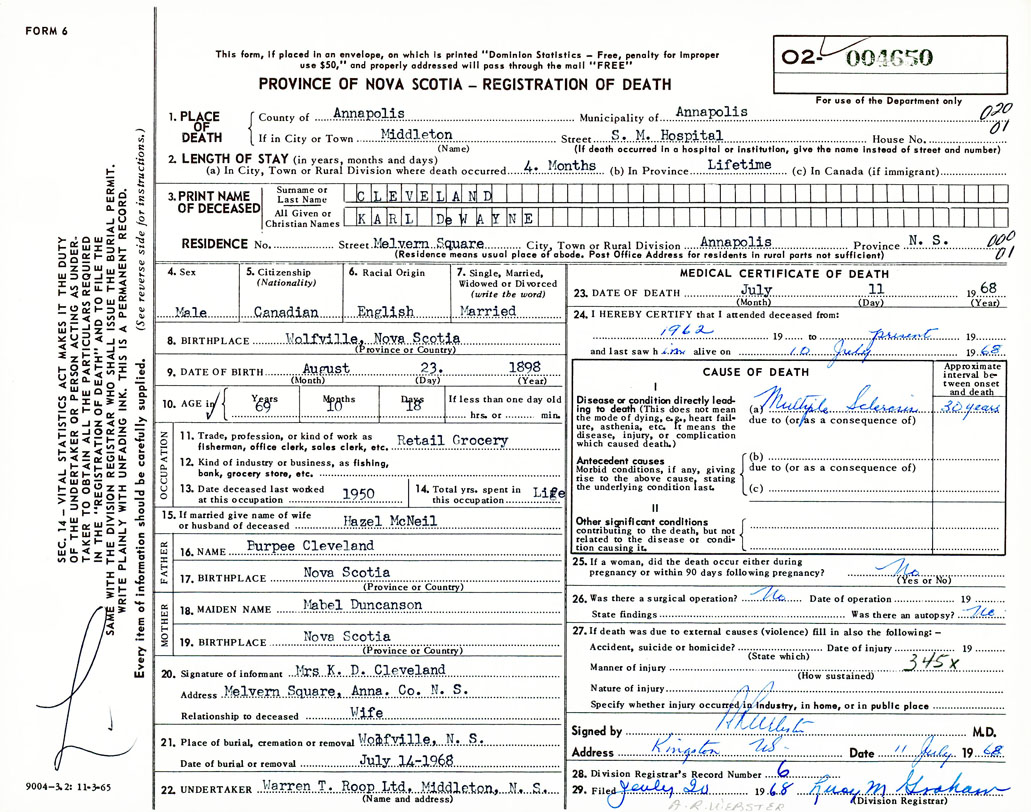 FORM 6
This form, if placed in an envelope, on which is printed "Dominion Statistics – Free, penalty for improper
use $50," and properly addressed will pass through the mail "FREE"
PROVINCE OF NOVA SCOTIA – REGISTRATION OF DEATH
02- 004650
For use of the Department only
020
01
1. PLACE OF DEATH
County of Annapolis Municipality of Annapolis
If in City or Town Middleton Street S. M. Hospital House No.
(Name) (If death occurred in a hospital or institution, give the name instead of street and number)
2. LENGTH OF STAY (in years, months and days)
(a) In City, Town or Rural Division where death occurred 4. Months (b) In Province Lifetime (c) In Canada (if immigrant)
3. PRINT NAME OF DECEASED
Surname or Last Name CLEVELAND
All Given or Christian Names KARL DeWAYNE
RESIDENCE No. Street Melvern Square City, Town or Rural Division Annapolis Province N. S.
(Residence means usual place of abode. Post Office Address for residents in rural parts not sufficient)
000
01
4. Sex
Male
5. Citizenship (Nationality)
Canadian
6. Racial Origin
English
7. Single, Married, Widowed or Divorced (write the word)
Married
8. BIRTHPLACE Wolfville, Nova Scotia
(Province or Country)
9. DATE OF BIRTH August 23. 1898
(Month) (Day) (Year)
10. AGE in Years 69 Months 10 Days 18 If less than one day old
hrs. or min.
OCCUPATION
11. Trade, profession, or kind of work as
fisherman, office clerk, sales clerk, etc. Retail Grocery
12. Kind of industry or business, as fishing,
bank, grocery store, etc.
13. Date deceased last worked at this occupation 1950
14. Total yrs. spent in this occupation Life
15. If married give name of wife
or husband of deceased Hazel McNeil
FATHER
16. NAME Purpee Cleveland
17. BIRTHPLACE Nova Scotia
(Province or Country)
MOTHER
18. MAIDEN NAME Mabel Duncanson
19. BIRTHPLACE Nova Scotia
(Province or Country)
20. Signature of informant Mrs K. D. Cleveland
Address Melvern Square, Anna. Co. N. S.
Relationship to deceased Wife
21. Place of burial, cremation or removal Wolfville, N. S.
Date of burial or removal July 14-1968
22. UNDERTAKER Warren T. Roop Ltd. Middleton, N. S.
(Name and address)
MEDICAL CERTIFICATE OF DEATH
23. DATE OF DEATH July 11 1968
(Month) (Day) (Year)
24. I HEREBY CERTIFY that I attended deceased from:
1962 19 to present 19
and last saw him alive on 10 July 1968
CAUSE OF DEATH
Approximate interval between onset and death
I
Disease or condition directly leading
to death (This does not mean
the mode of dying, e.g., heart failure,
asthenia, etc. It means the
disease, injury, or complication
which caused death.)
(a) Multiple Sclerosis 30 years
due to (or as a consequence of)
Antecedent causes
Morbid conditions, if any, giving
rise to the above cause, stating
the underlying condition last.
(b)
due to (or as a consequence of)
(c)
II
Other significant conditions
contributing to the death, but not
related to the disease or condition
causing it.
25. If a woman, did the death occur either during
pregnancy or within 90 days following pregnancy? No
(Yes or No)
26. Was there a surgical operation? No Date of operation 19
State findings Was there an autopsy? No
27. If death was due to external causes (violence) fill in also the following: –
Accident, suicide or homicide? Date of injury 19
(State which)
345x
Manner of injury
(How sustained)
Nature of injury
Specify whether injury occurred in industry, in home, or in public place
Signed by M.D.
Address Kingston NS. Date 11 July 1968
28. Division Registrar's Record Number 6
29. Filed July 20 1968 Lucy M Graham
(Division Registrar)
A.R. WEBSTER
SEC. 14 – VITAL STATISTICS ACT MAKES IT THE DUTY
OF THE UNDERTAKER OR PERSON ACTING AS UNDER-
TAKER TO OBTAIN ALL THE PARTICULARS REQUIRED
IN THE "REGISTRATION OF DEATH" AND TO FILE THE
SAME WITH THE DIVISION REGISTRAR WHO SHALL ISSUE THE BURIAL PERMIT.
WRITE PLAINLY WITH UNFADING INK. THIS IS A PERMANENT RECORD.
Every item of information should be carefully supplied. (See reverse side for instructions.)
9004-3.2: 11-3-65